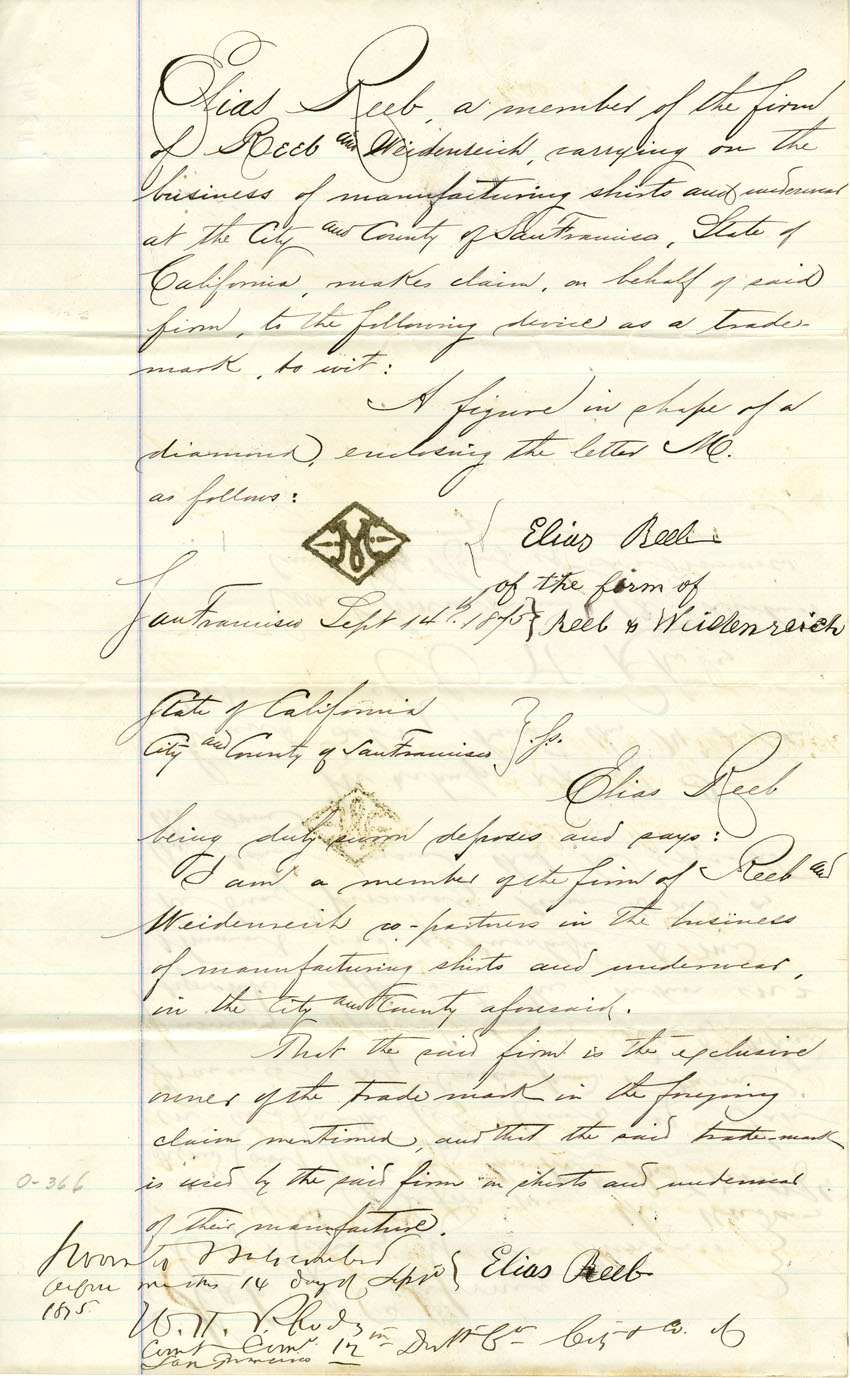 Elias Reeb, a member of the firm
of Reeb and Weidenreich, carrying on the
business of manufacturing shirts and underwear
at the City and County of San Francisco, State of
California, makes claim, on behalf of said
firm, to the following device as a trade-
mark, to wit:
A figure in shape of a
diamond, enclosing the letter M.
as follows:
M
Elias Reeb
of the firm of
San Francisco Sept 14th 1875 } Reeb & Weidenreich
State of California
City and County of San Francisco } ss.
Elias Reeb
being duly sworn deposes and says:
I am a member of the firm of Reeb and
Weidenreich co-partners in the business
of manufacturing shirts and underwear,
in the City and County aforesaid.
That the said firm is the exclusive
owner of the trade mark in the foregoing
claim mentioned, and that the said trade-mark
is used by the said firm on shirts and underwear
of their manufacture.
O-366
Sworn to & subscribed
before me this 14 day of Sept } Elias Reeb
1875.
W. H. Rhodes
Court Comr. 12 City & Co. of
San Francisco